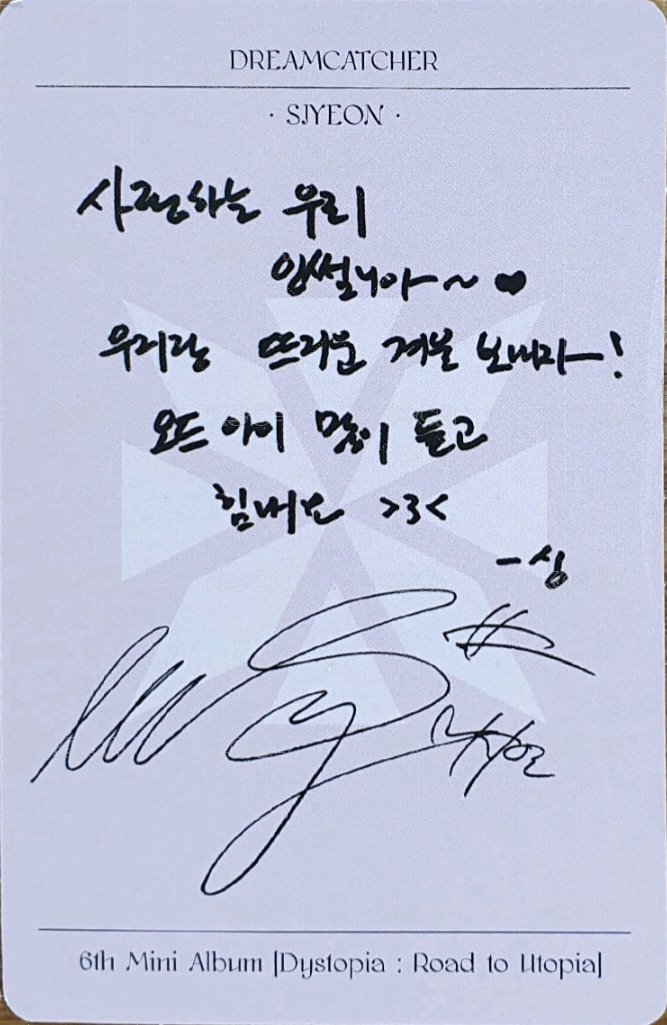 DREAMCATCHER
· SIYEON ·
사랑하는 우리
인썸니아~ ♥
우리랑 뜨거운 겨울 보내자!
오드아이 많이 듣고
힘내요 >3<
-싱
6th Mini Album [Dystopia : Road to Utopia]